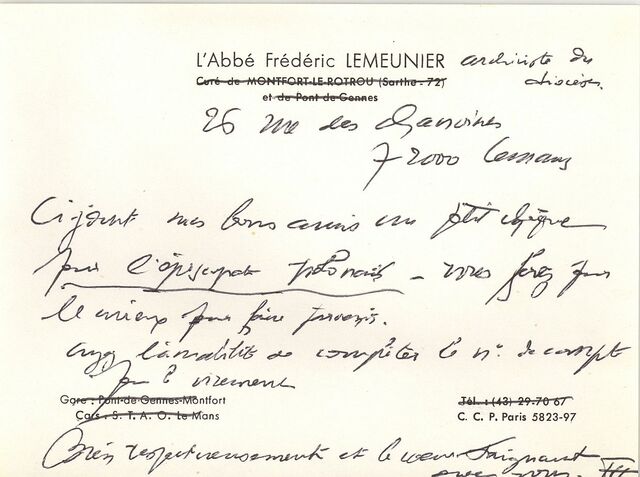 L'Abbé Frédéric LEMEUNIER archiviste du
diocèse.
Curé de MONTFORT-LE-ROTROU (Sarthe - 72)
et de Pont de Gennes
26 rue des Chanoines
72000 Lemans
Ci joint mes bons amis un petit chèque
pour l'épiscopat polonais - vous ferez pour
le mieux pour faire parvenir.
ayez l'amabilité de compléter le n° de compte
pour le virement
Gare : Pont-de-Gennes-Montfort
Cars : S. T. A. O. Le Mans
Tél. : (43) 29.70 67
C. C. P. Paris 5823-97
Très respectueusement et le cœur saignant
avec vous.